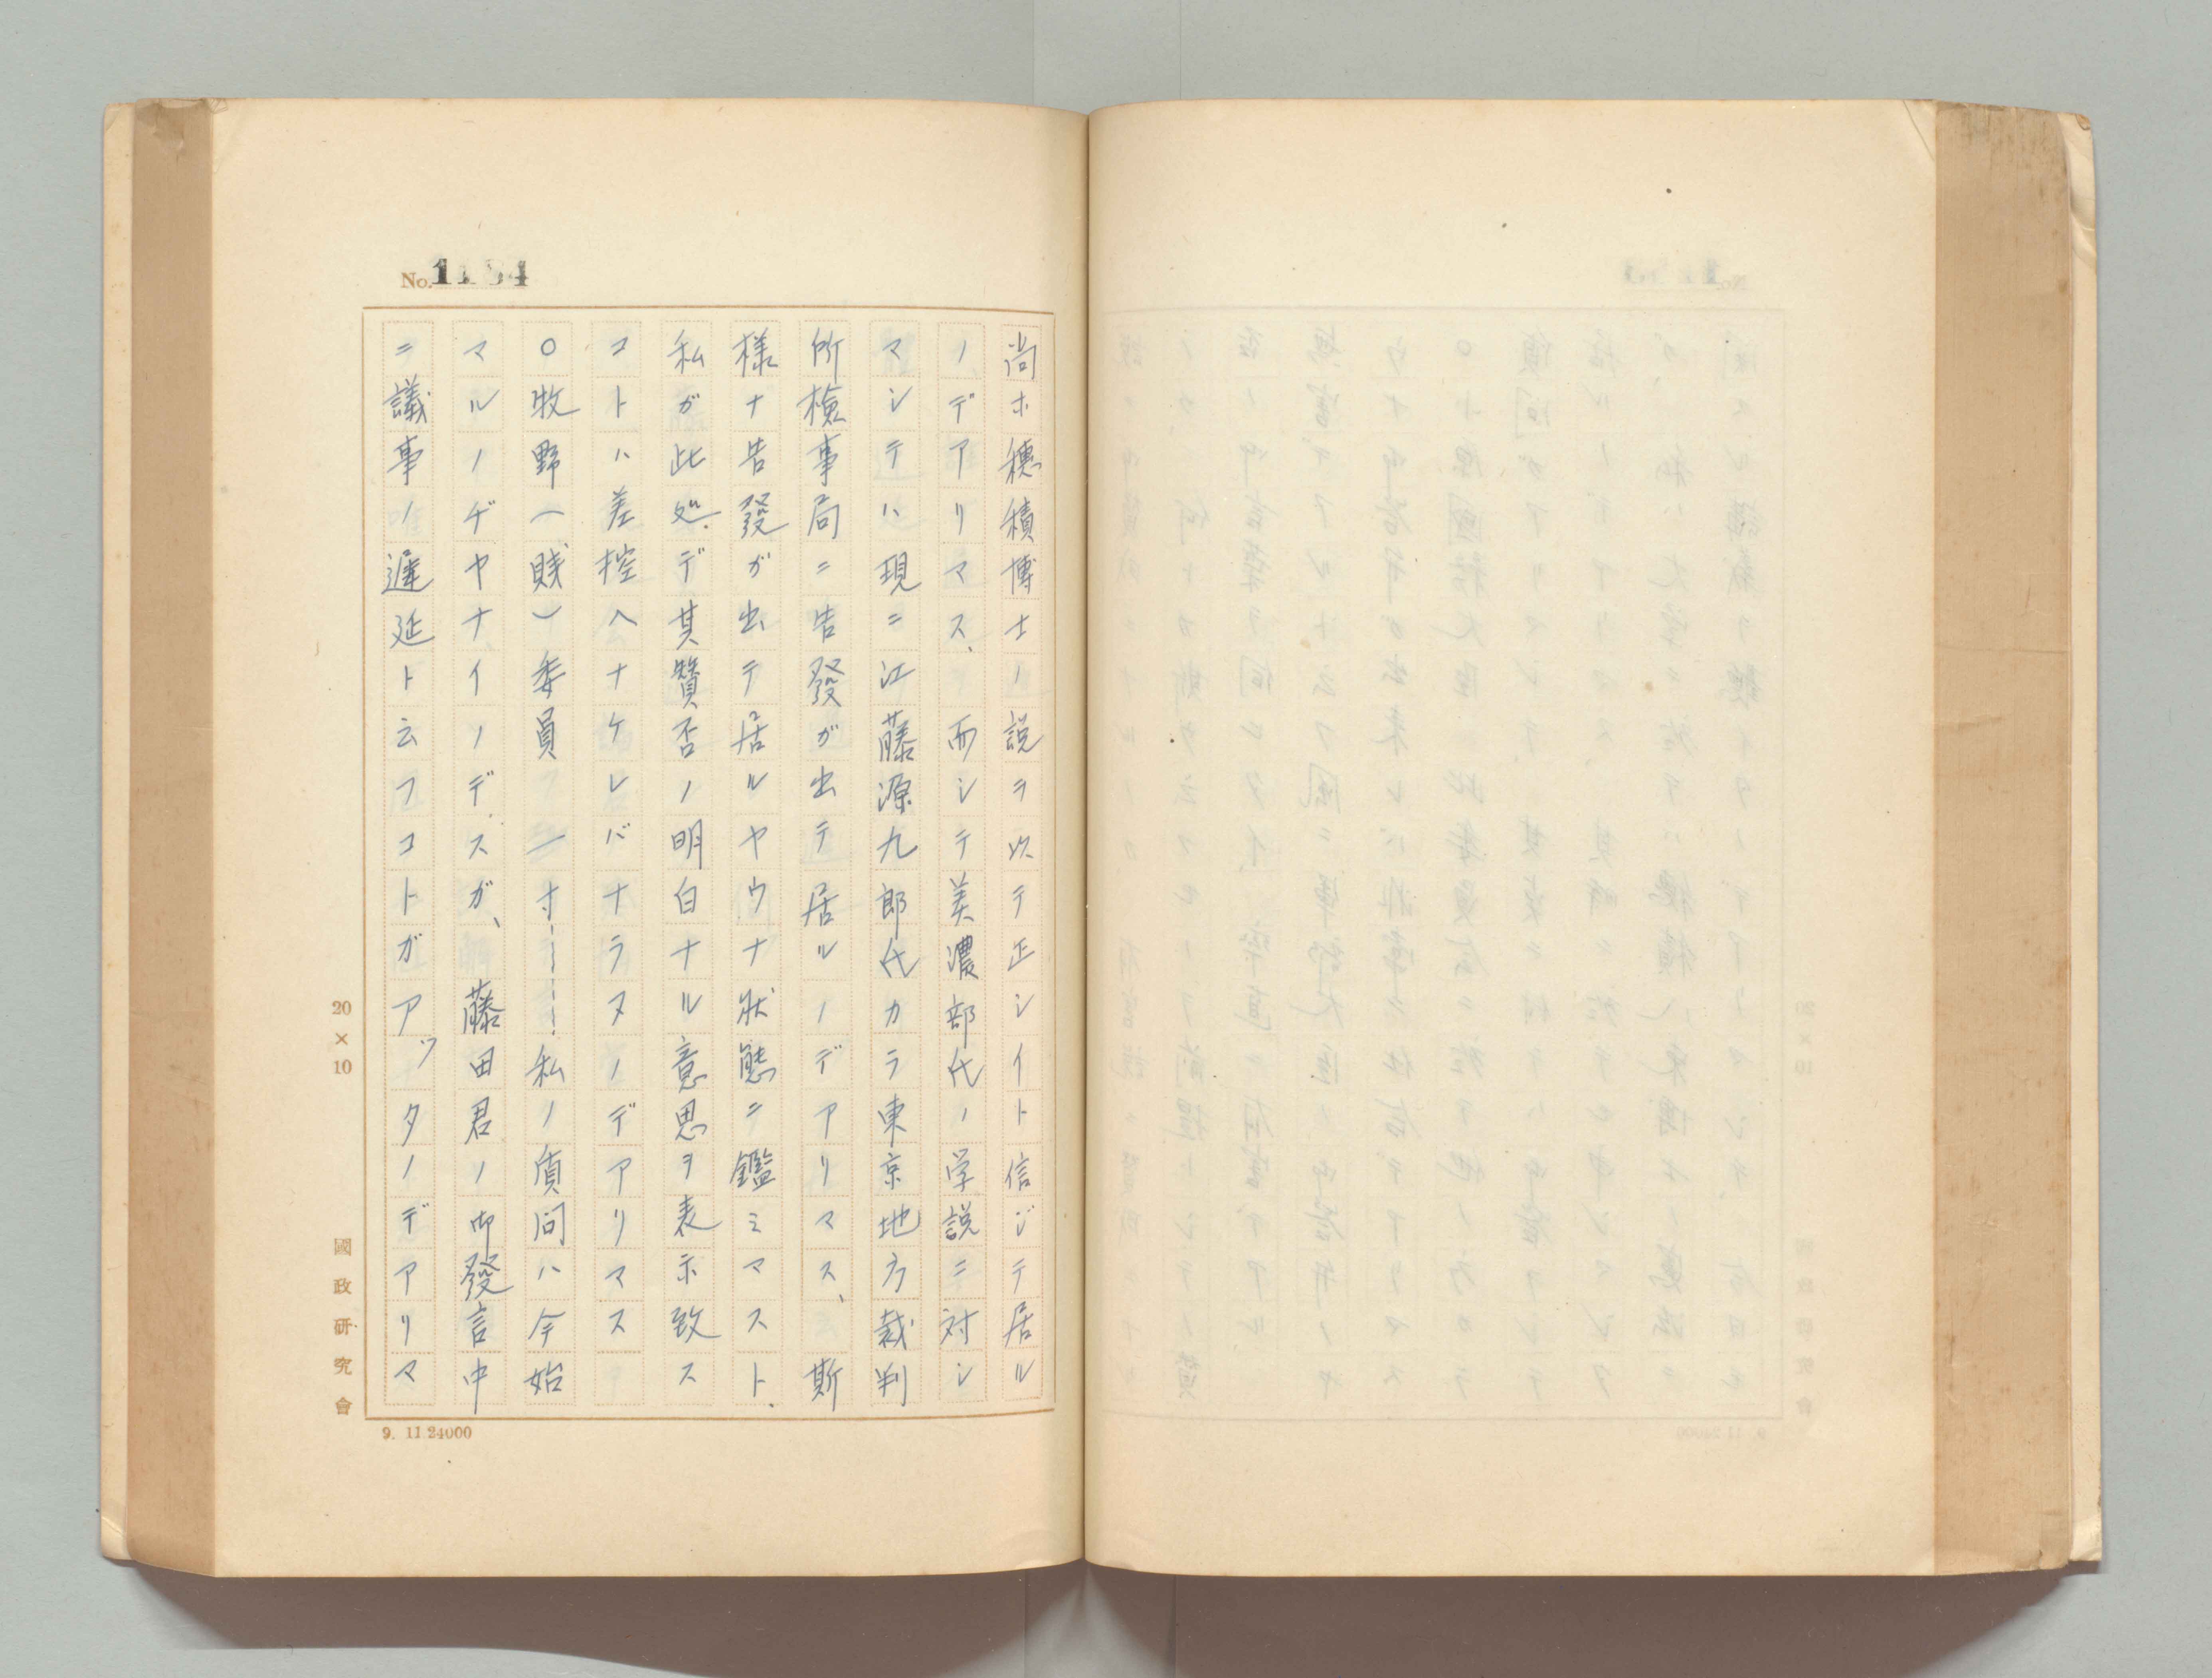 No. 1184
尚ホ穗積博士ノ説ヲ以テ正シイト信ジテ居ル
ノデアリマス、而シテ美濃部氏ノ学説ニ対シ
マシテハ現ニ江藤源九郎氏カラ東京地方裁判
所檢事局ニ告發ガ出テ居ルノデアリマス、斯
様ナ告發ガ出テ居ルヤウナ狀態ニ鑑ミマスト、
私ガ此処デ其贊否ノ明白ナル意思ヲ表示致ス
コトハ差控ヘナケレバナラヌノデアリマス
〇牧野(賤)委員 一寸……私ノ質问ハ今始
マルノヂヤナイノデスガ、藤田君ノ御發言中
ニ議事ノ遲延ト云フコトガアツタノデアリマ
20×10
國政研究會
9. 11 24000